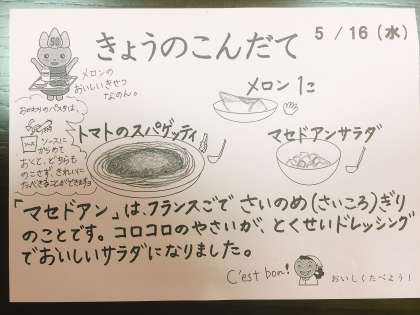 きょうのこんだて
5 / 16 (水)
50
メロンの
おいしいきせつ
なのん。
メロン 1こ
おかわりのパスタは、
ソースに
からめて
おくと、どちらも
のこさず、きれいに
たべきることができますヨ
トマトのスパゲッティ
マセドアンサラダ
「マセドアン」は、フランスごで さいのめ(さいころ)ぎり
のことです。コロコロのやさいが、とくせいドレッシング
でおいしいサラダになりました。
C'est bon!
おいしくたべよう!